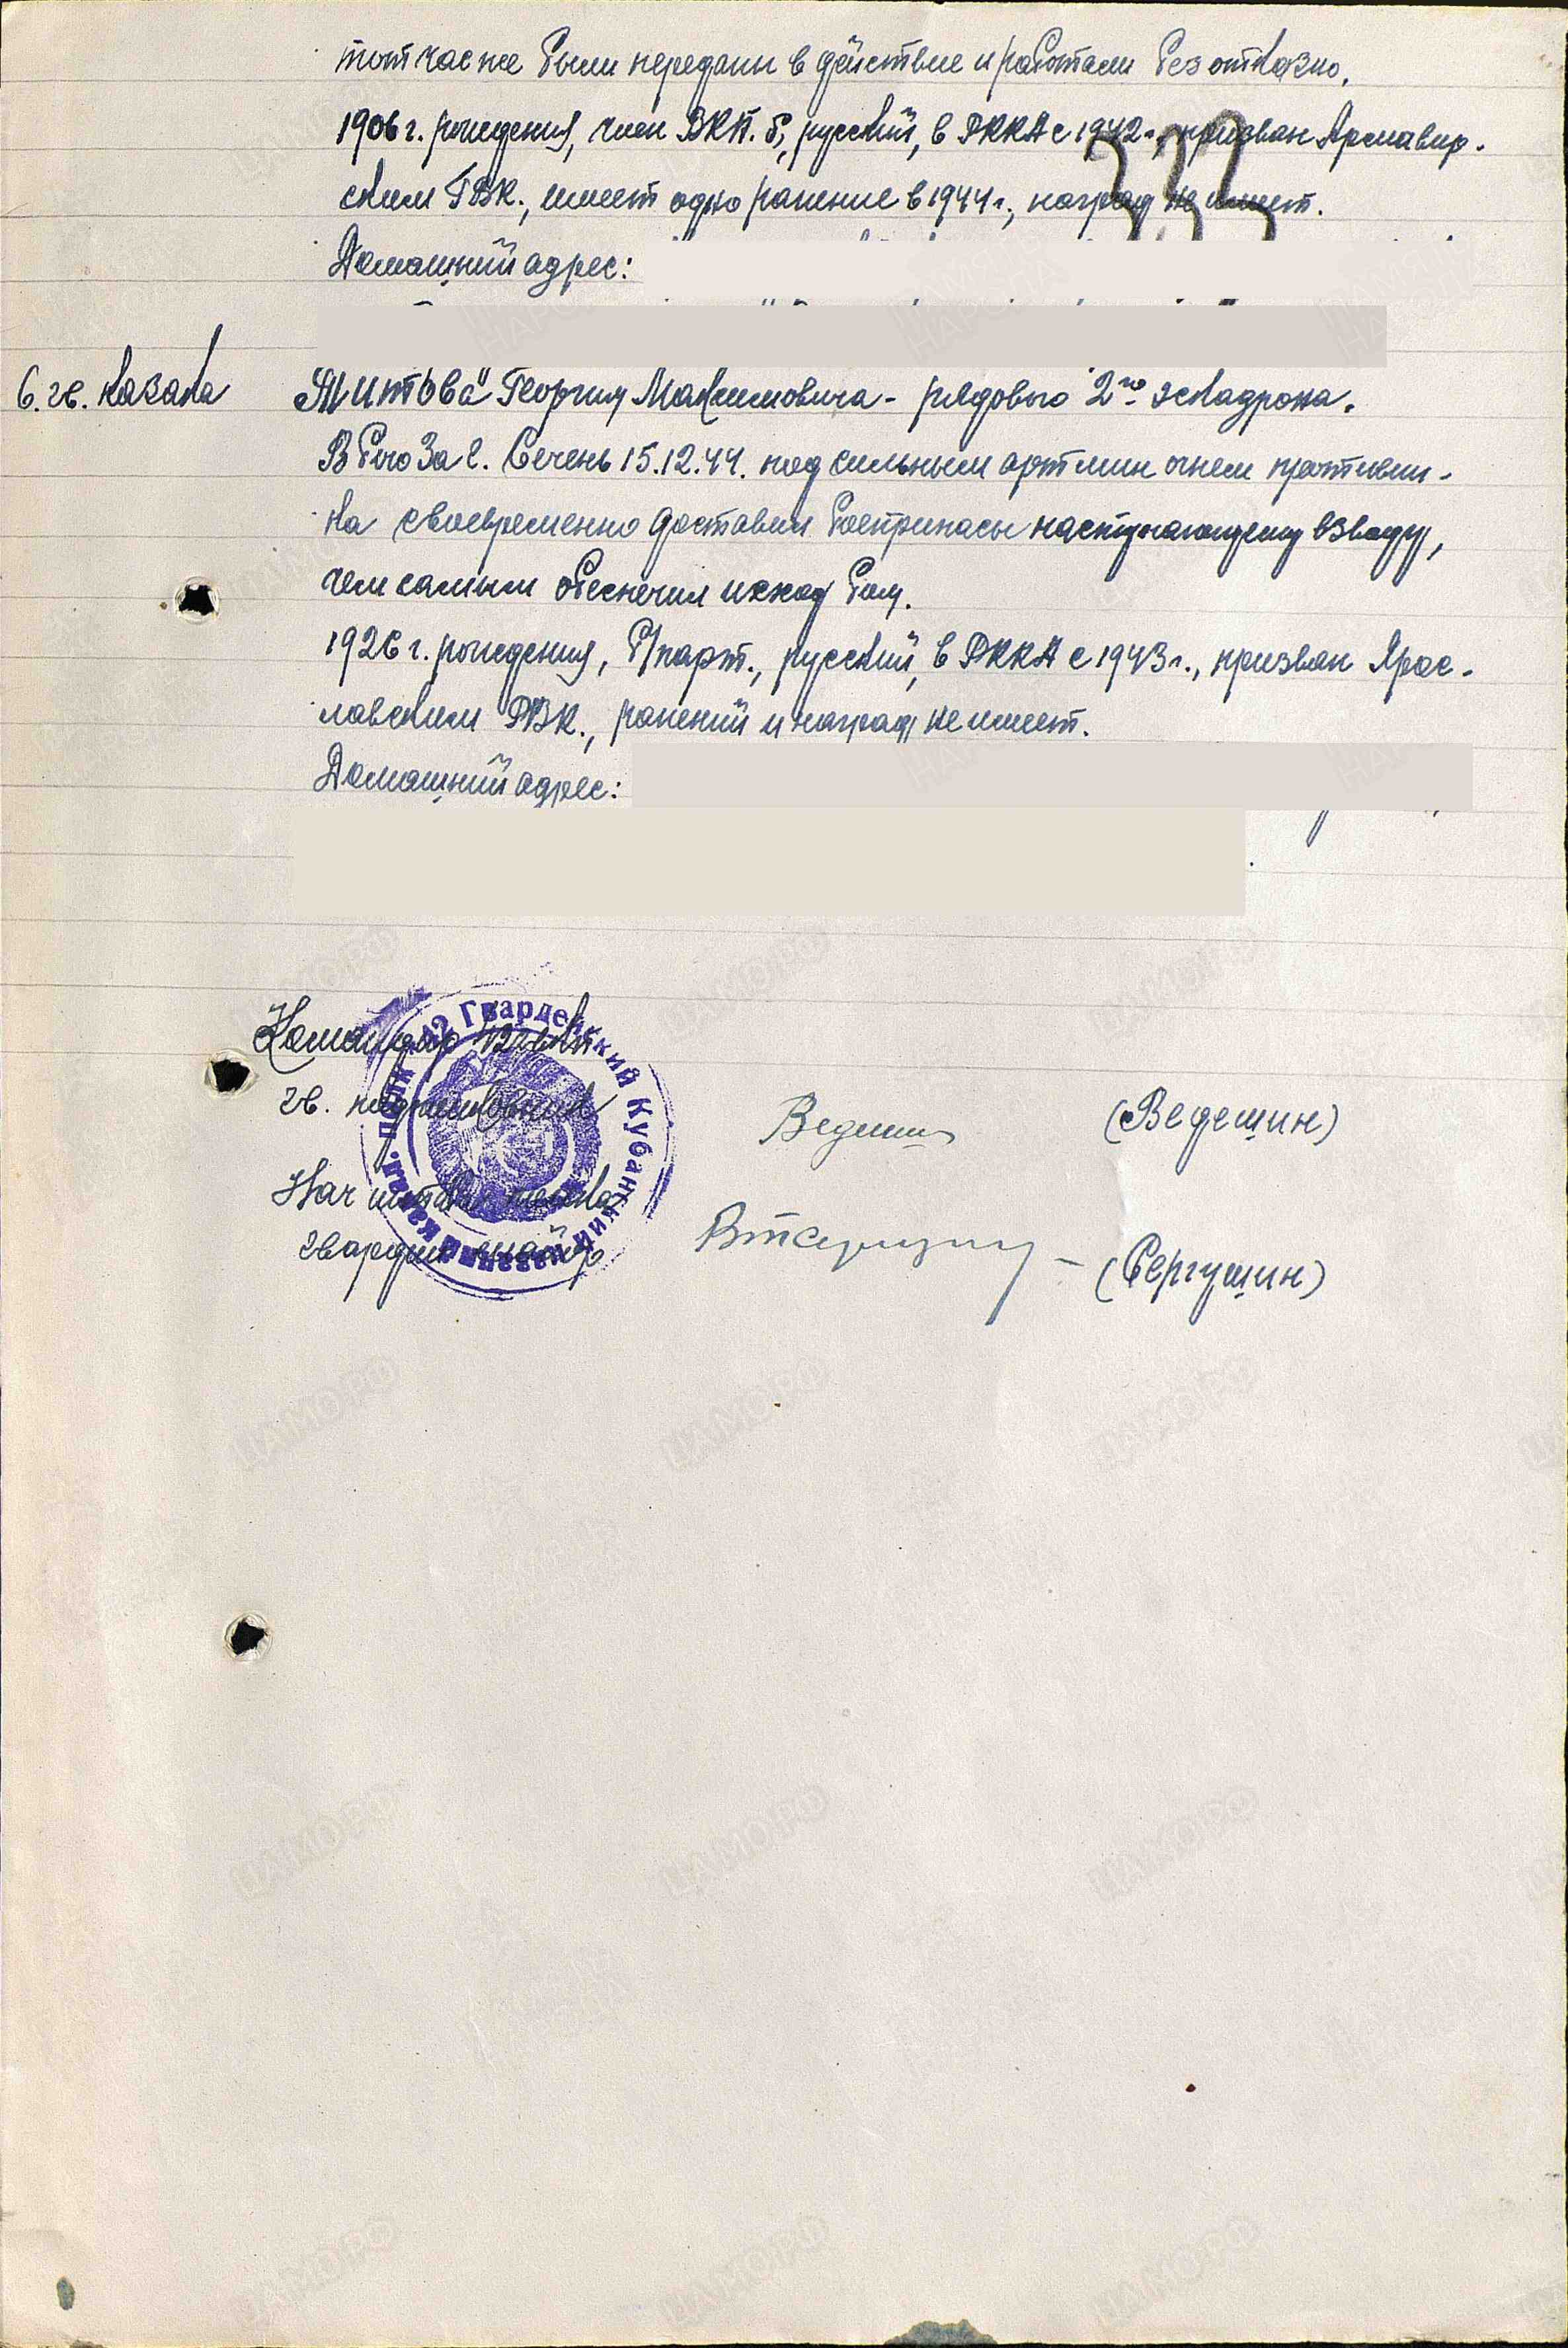 тот час же были переданы в действие и работали безотказно.
1906 г. рождения, член ВКП.б, русский, в РККА с 1942 г., призван Армавир-
ским ГВК., имеет одно ранение в 1944 г., наград не имеет.
Домашний адрес:
6. гв. казака "Титова" Георгия Максимовича - рядового 2го эскадрона.
В бою за с. Сечень 15.12.44. под сильным арт мин огнем противни-
ка своевременно доставил боеприпасы наступающему взводу,
чем самым обеспечил исход боя.
1926 г. рождения, б/парт., русский, в РККА с 1943 г., призван Ярос-
лавским РВК., ранений и наград не имеет.
Домашний адрес:
Командир 42 гвкп
гв. подполковник Ведешин (Ведешин)
Нач штаба полка
гвардии майор (Сергушин)
42 Гвардейский Кубанский казачий кавал. полк
ЦАМО.РФ